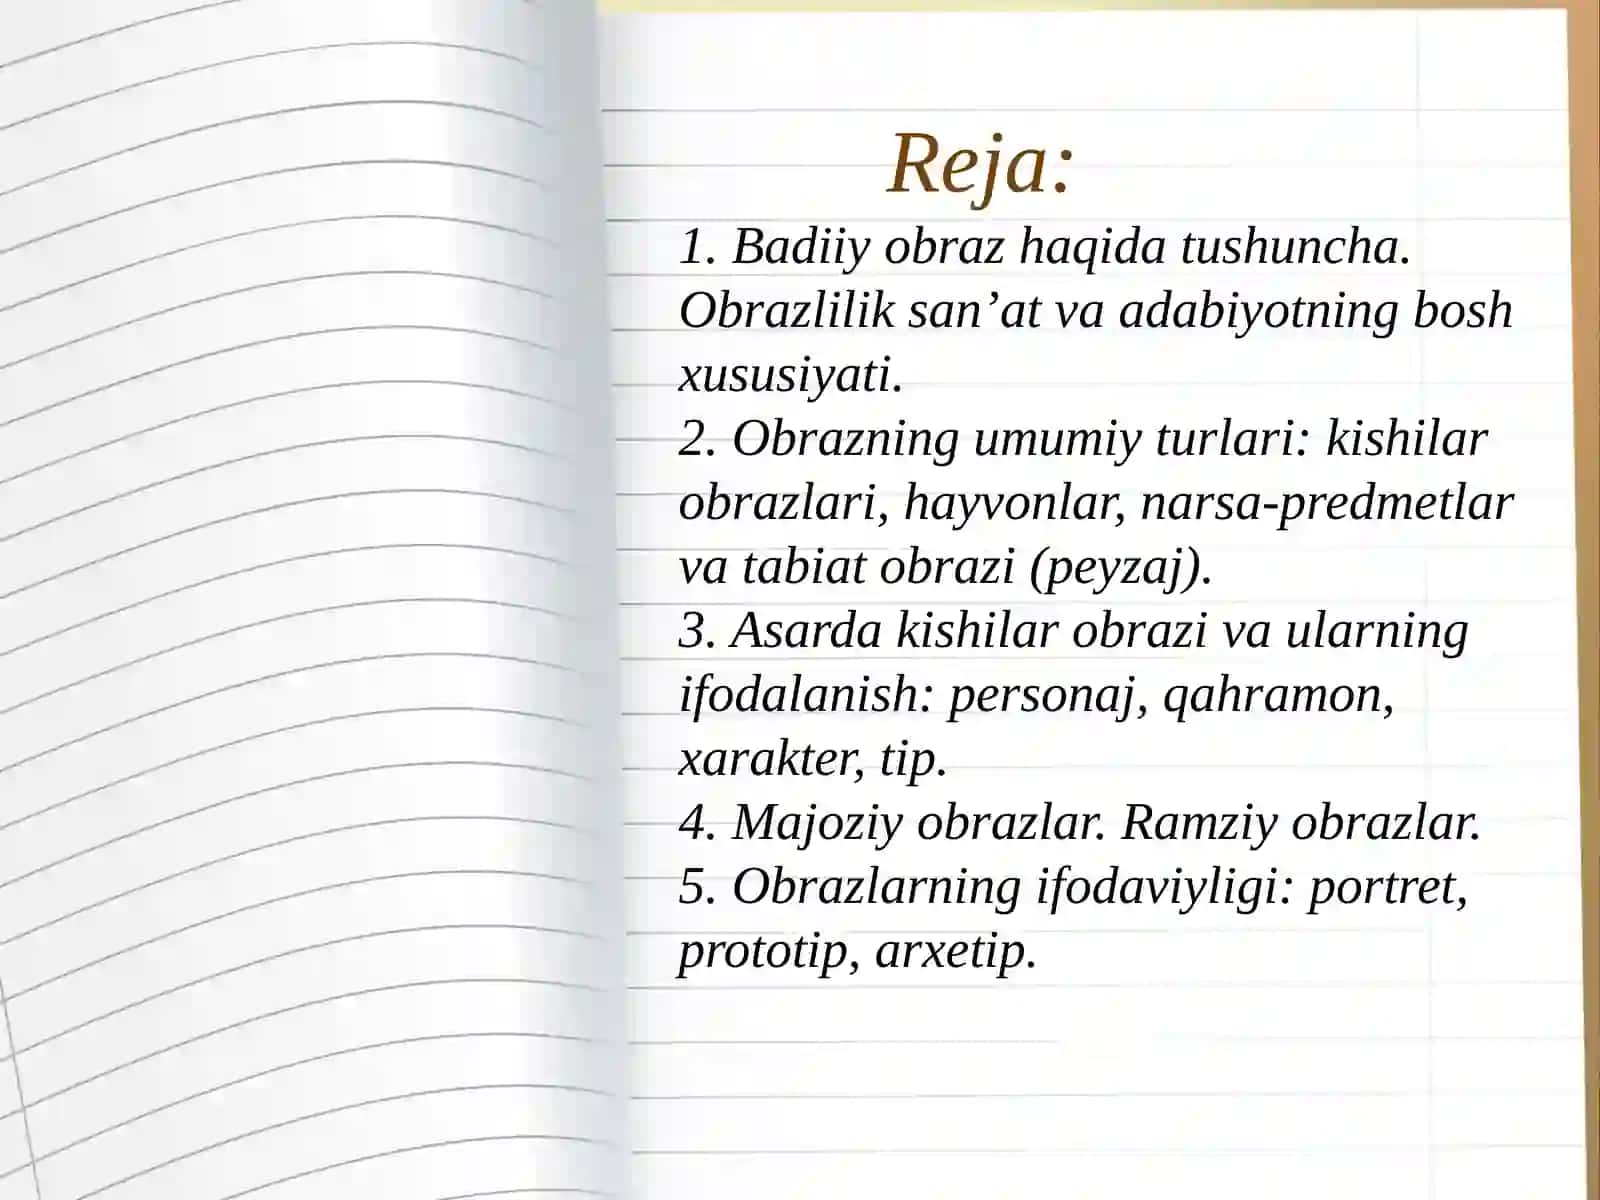 Reja:
1. Badiiy obraz haqida tushuncha.
Obrazlilik san’at va adabiyotning bosh
xususiyati.
2. Obrazning umumiy turlari: kishilar
obrazlari, hayvonlar, narsa-predmetlar
va tabiat obrazi (peyzaj).
3. Asarda kishilar obrazi va ularning
ifodalanish: personaj, qahramon,
xarakter, tip.
4. Majoziy obrazlar. Ramziy obrazlar.
5. Obrazlarning ifodaviyligi: portret,
prototip, arxetip.